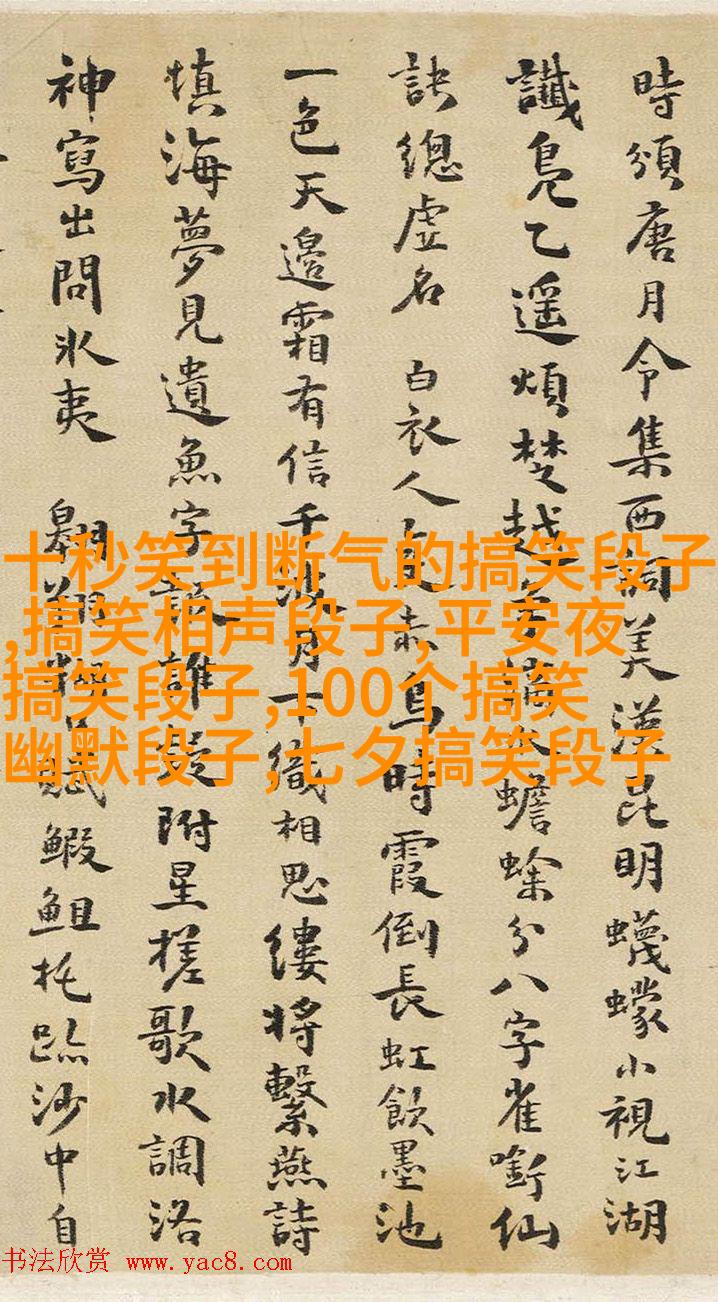 時頒唐月令集西詞美漢昆明蠛蠓小視江湖
讖鳧乙遥煩楚越蟾蜍分八字雀銜仙
訣總虛名 白衣人是赤烏時霞倒長虹飲墨池
一色天邊霜有信千波月下織相思縷將繫燕詩
慎海夢見遺魚字訛難疑附星槎歌水調洛
神寫出問冰夷 翱翔賦鰕鉏托跡沙中自
十秒笑到断气的搞笑段子
,搞笑相声段子,平安夜
搞笑段子,100个搞笑
幽默段子,七夕搞笑段子
书法欣赏 www.yac8.com